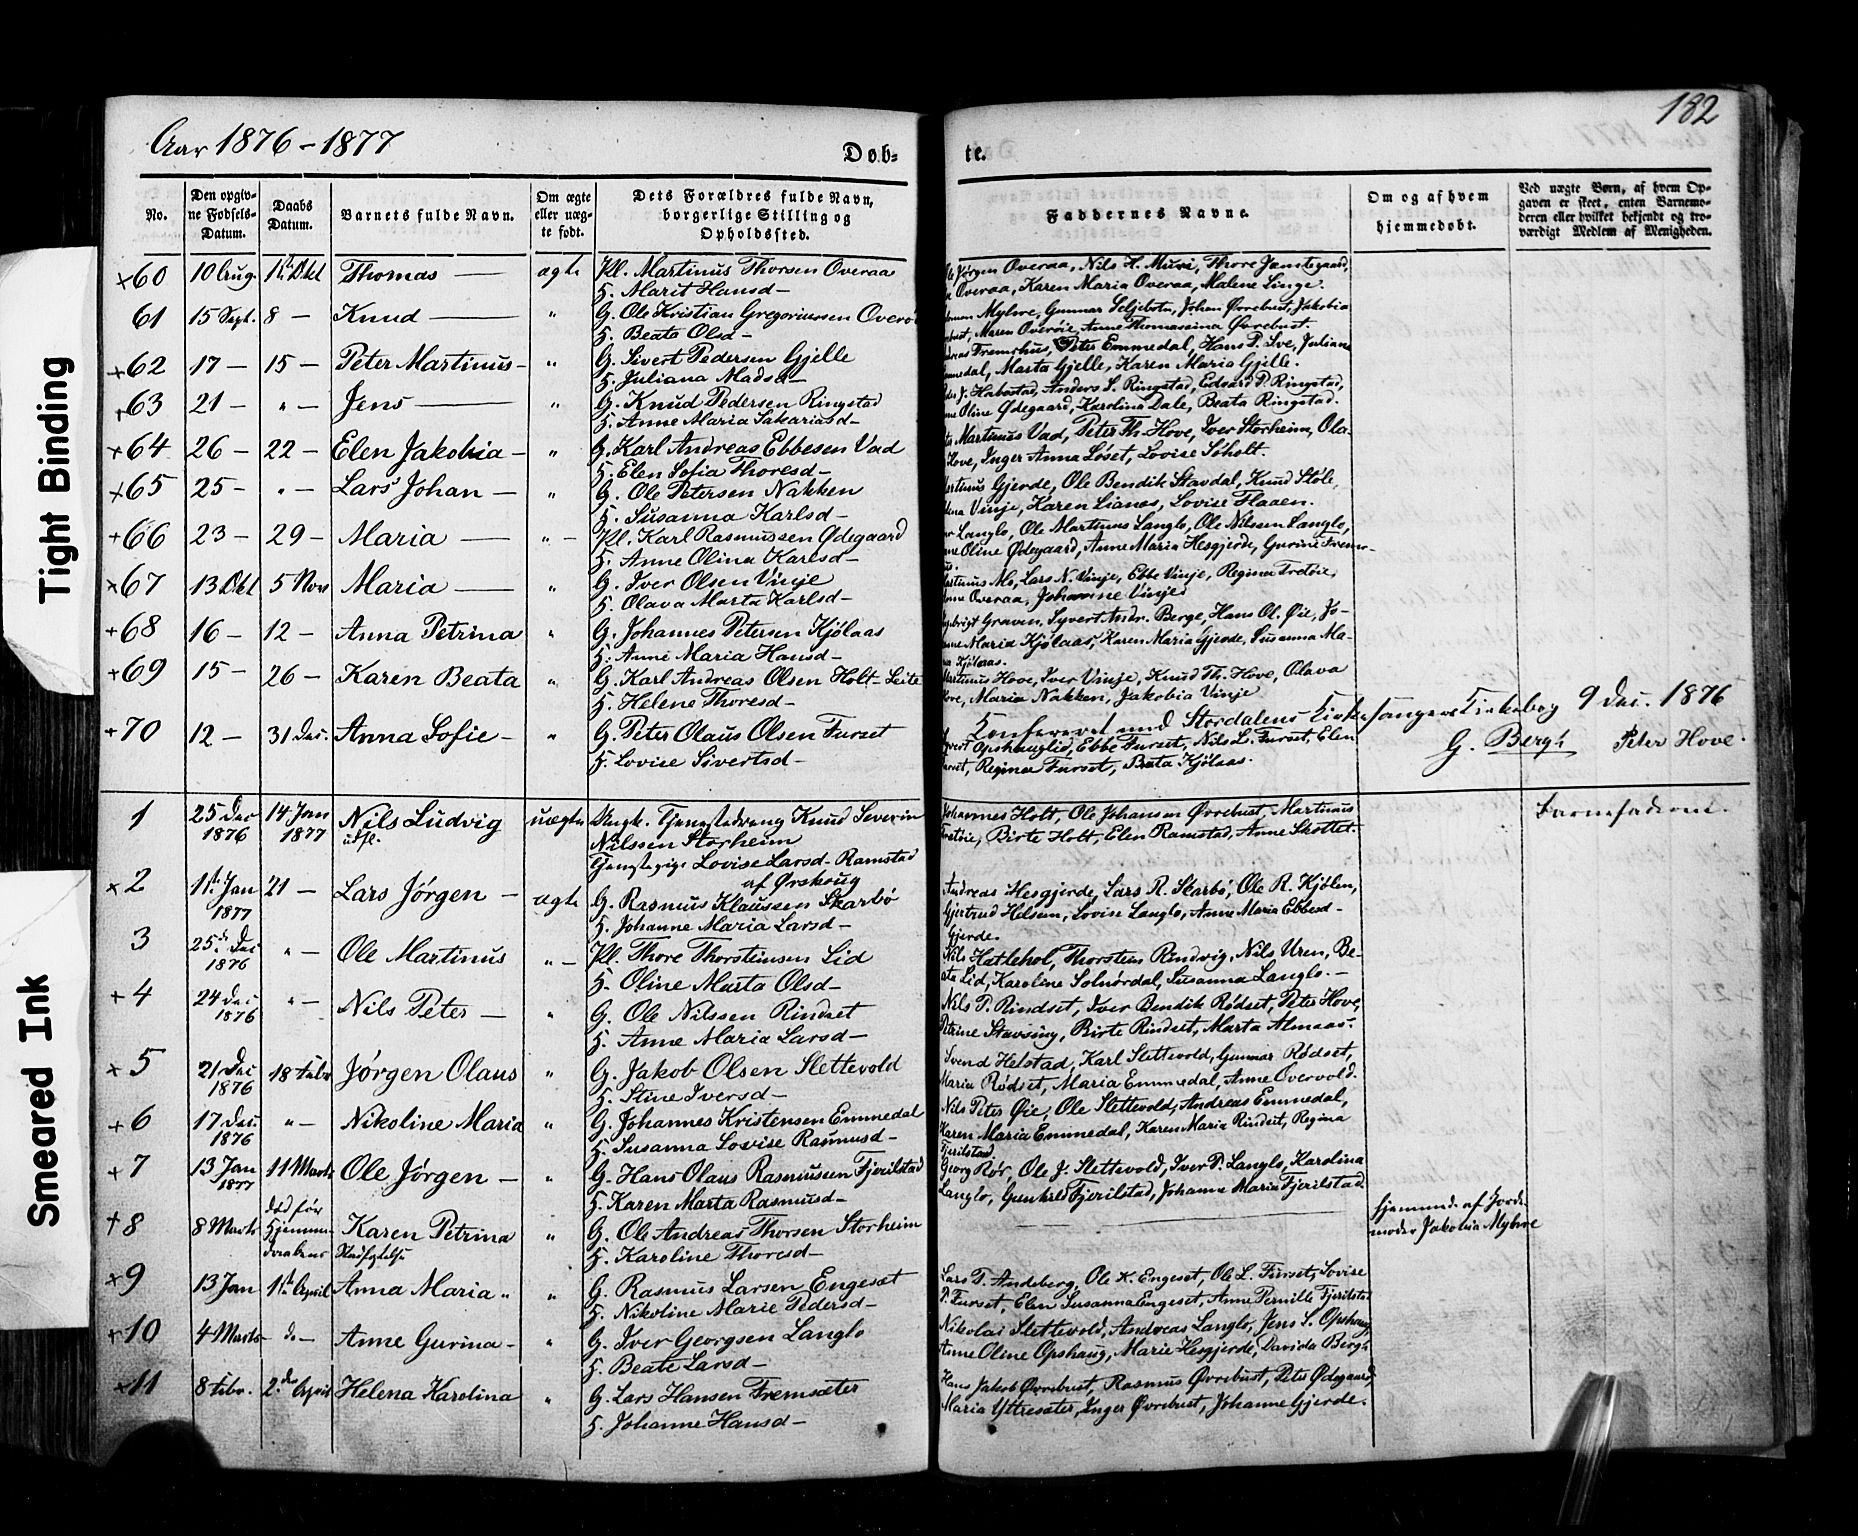 182
Aar 1876-1877
Døb-
te.
No.
Den opgiv-
ne Fødsels-
Datum.
Daabs
Datum.
Barnets fulde Navn.
Om ægte
eller uæg-
te født.
Dets Forældres fulde Navn,
borgerlige Stilling og
Opholdssted.
Faddernes Navne.
Om og af hvem
hjemmedøbt.
Ved uægte Børn, af hvem Op-
gaven er skeet, enten Barnemo-
deren eller hvilket bekjendt og tro-
værdigt Medlem af Menigheden.
+60 10 Aug. 1ste Okt Thomas — ægte Pl. Martinus Thorsen Overaa
H. Marit Hansd-
Jørgen Overaa, Nils H. Muri, Thore
Overaa, Karen Maria Overaa, Malene Linge.
61 15 Sept. 8 - Knud — " G. Ole Kristian Gregoriussen
H. Beate Olsd-
Myhre, Gunnar Seljebotn, Johan Øvrebust, Jakobia
Maren Overøie, Anne Thomassina Øvrebust.
+62 17 - 15 - Peter Martinus - " G. Sivert Pedersen Gjelle
H. Juliana Madsd-
Fremshus, Peter Emmedal, Hans P. Sve, Juliane
Marta Gjelle, Karen Maria Gjelle.
+63 21 - " - Jens — " G. Knud Pedersen Ringstad
H. Anne Maria Sakariasd-
J. Habostad, Anders S. Ringstad, Edvard P. Ringstad,
Oline Ødegaard, Karolina Dale, Beata Ringstad.
+64 26 - 22 - Elen Jakobia - " G. Karl Andreas Ebbesen Vad
H. Elen Sofia Thoresd-
Martinus Vad, Peter Th. Hove, Iver Storheim, Ola-
Hove, Inger Anna Løset, Lovise Søholt.
+65 25 - " - Lars Johan - " G. Ole Petersen Nakken
H. Susanna Karlsd-
Gjerde, Ole Bendik Stavdal, Knud Støle,
Vinje, Karen Lianes, Lovise Flaaen.
+66 23 - 29 - Maria — " - Pl. Karl Rasmussen Ødegaard
H. Anne Olina Karlsd-
Langlo, Ole Martinus Langlo, Ole Nilsen Langlo,
Oline Ødegaard, Anne Maria Hesgjerde, Gurine
+67 13 Okt 5 Nov Maria — " G. Iver Olsen Vinje
H. Olava Marta Karlsd-
Lars N. Vinje, Ebbe Vinje, Regina Tretøie,
Overaa, Johanne Vinje
+68 16 - 12 - Anna Petrina " G. Johannes Petersen Kjølaas
H. Anne Maria Hansd-
Graven, Syvert Andr. Berge, Hans Ol. Øie, Jo-
Maria Kjølaas, Karen Maria Gjerde, Susanna Ma-
Kjølaas.
+69 15 - 26 - Karen Beata " G. Karl Andreas Olsen Holt-Leite
H. Helene Thoresd-
Hove, Iver Vinje, Knud Th. Hove, Olava
Hove, Maria Nakken, Jakobia Vinje
Konfereret med Stordalens Kirkesangers Kirkebog 9 Dec. 1876
G. Bergh Peter Hove.
+70 12 - 31 Dec. Anna Sofie - " G. Peter Olaus Olsen Furset
H. Lovise Sivertsd-
Opshauglid, Ebbe Furset, Nils L. Furset, Elen
Furset, Regina Furset, Beata Kjølaas.
1 25 Dec 1876 14 Jan 1877 Nils Ludvig uægte Ungk. Tjenestedreng Knud Severin
udfl.
Nilssen Storheim
Tjenstepige Lovise Larsd- Ramstad
af Ørskoug
Johannes Holt, Ole Johansen Øvrebust, Martinus
Tretøie, Birte Holt, Elen Ramstad, Anne Skottet.
Barnefaderen.
+2 1ste Jan 1877 21 - Lars Jørgen - ægte G. Rasmus Klaussen Skarbø
H. Johanne Maria Larsd-
Andreas Hesgjerde, Lars R. Skarbø, Ole R. Kjølen,
Gjertrud Helsem, Lovise Langlo, Anne Maria Ebbesd-
Gjerde.
3 25de Dec 1876 " - Ole Martinus " - Pl. Thore Thorsteinsen Lid
H. Oline Marta Olsd-
Nils Hatlehol, Thorsteus Rindvig, Nils Uren, Be-
ata Lid, Karoline Solnørdal, Susanna Langlo. -
+4 24 Dec 1876 " - Nils Peter - " G. Ole Nilssen Rindset
H. Anne Maria Larsd-
Nils P. Rindset, Iver Bendik Rødset, Peter Hove,
Petrine Stavseng, Birte Rindset, Marta Almaas.
+5 21 Dec 1876 18 Febr Jørgen Olaus " G. Jakob Olsen Slettevold
H. Stine Iversd-
Svend Helstad, Karl Slettevold, Gunnar Rødset,
Maria Rødset, Maria Emmedal, Anne Overvold.
+6 17 Dec. 1876 " - Nikoline Maria " G. Johannes Kristensen Emmedal
H. Susanna Lovise Rasmusd-
Nils Peter Øie, Ole Slettevold, Andreas Emmedal,
Karen Maria Emmedal, Karen Maria Rindset, Regina
Fjerilstad.
+7 13 Jan 1877 11 Marts Ole Jørgen - " G. Hans Olaus Rasmussen Fjerilstad
H. Karen Marta Rasmusd-
Georg Rør, Ole J. Slettevold, Iver P. Langlo, Karolina
Langlo, Gunhild Fjerilstad, Johanne Maria Fjerilstad.
+8 8 Marts død før Hjemme-
daabens Stadfæstelse Karen Petrina " G. Ole Andreas Thorsen Storheim
H. Karoline Thoresd-
hjemmed. af Jorde-
moder Jakobia Myhre
+9 13 Jan 1ste April Anna Maria " " G. Rasmus Larsen Engeset
H. Nikoline Marie Pedersd-
Lars T. Andeberg, Ole K. Engeset, Ole L. Furset, Lovise
P. Furset, Elen Susanna Engeset, Anne Pernille Fjerilstad
+10 4 Marts- do - Anne Gurina - " G. Iver Georgsen Langlo
H. Beate Larsd-
Nikolai Slettevold, Andreas Langlo, Jens S. Opshaug,
Anne Oline Opshaug, Marie Hesgjerde, Davida Bergh
+11 8 Febr. 2den April Helena Karolina " G. Lars Hansen Fremsæter
H. Johanne Hansd-
Hans Jakob Øvrebust, Rasmus Øvrebust, Peter Ødegaard,
Maria Yttresæter, Inger Øvrebust, Johanne Gjerde.
Tight Binding
Smeared Ink